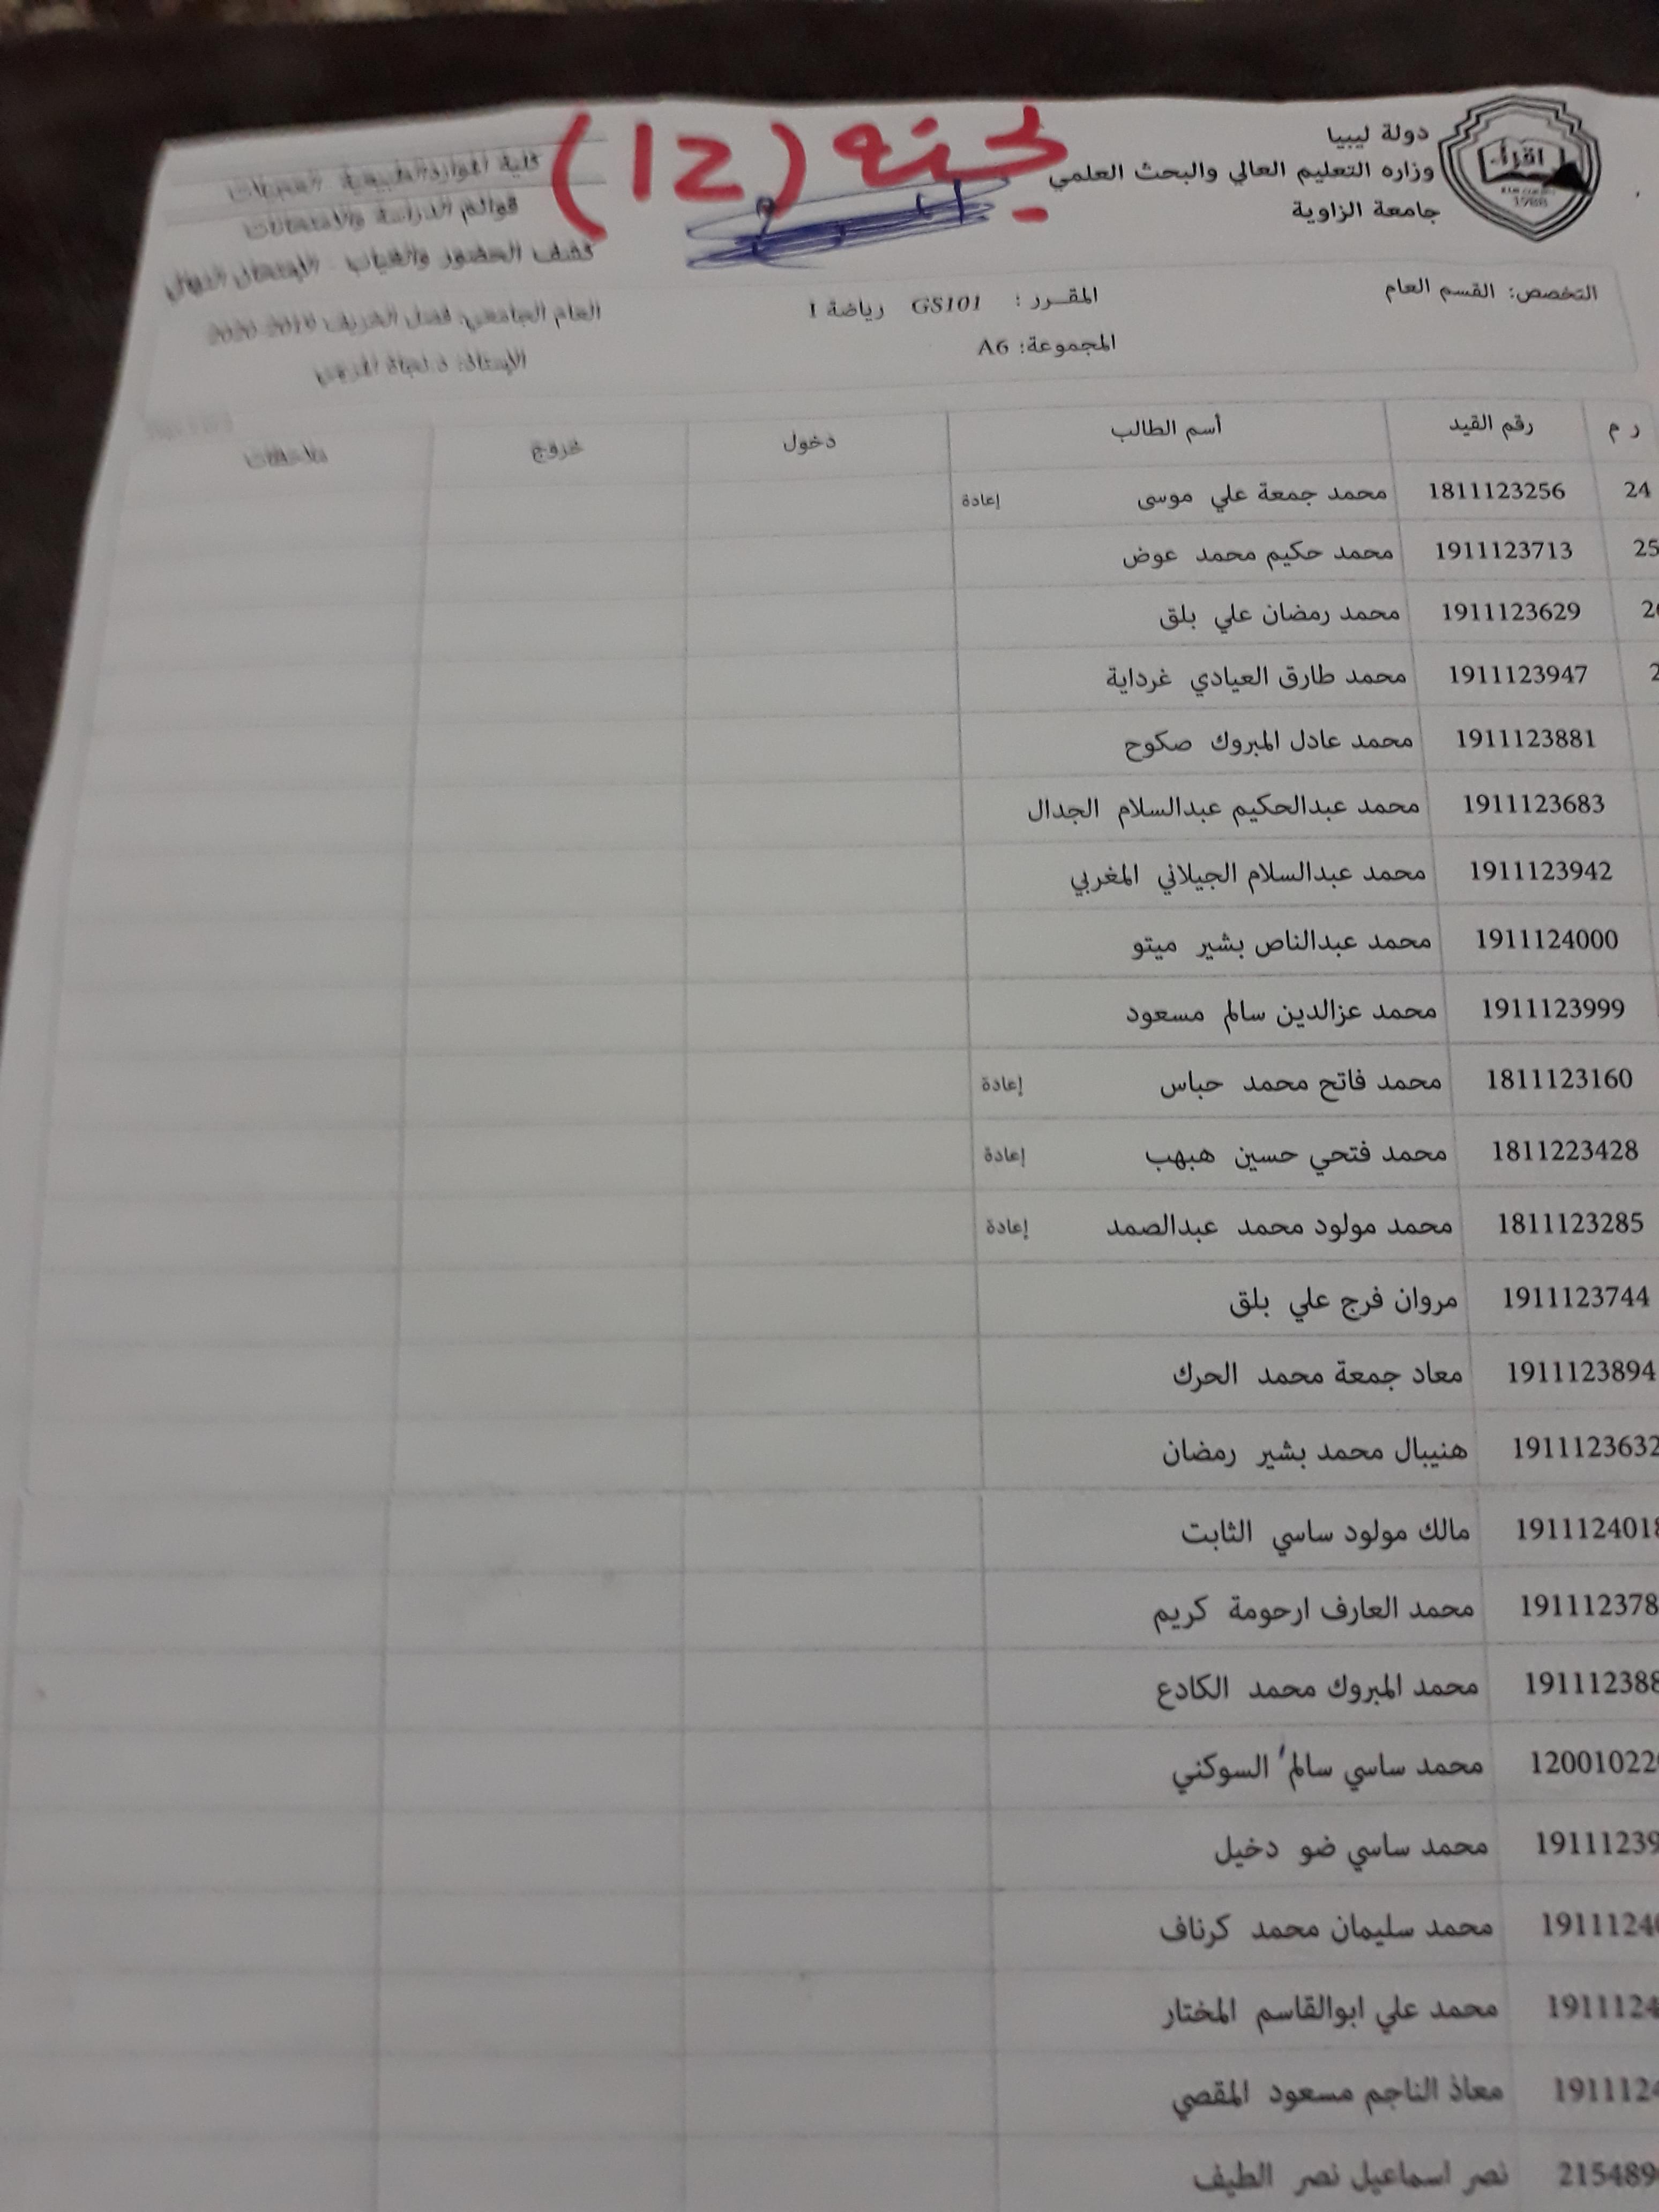 لجنه (12)
دولة ليبيا
وزاره التعليم العالي والبحث العلمي
جامعة الزاوية
اقرأ
1988
كلية الموارد الطبيعية العجيلات
قوائم الدراسة والامتحانات
كشف الحضور والغياب الإمتحان النهائي
العام الجامعي: فصل الخريف 2019-2020
الأستاذ: د.نجاة
التخصص: القسم العام
المقـرر : GS101 رياضة 1
المجموعة: A6
ر م رقم القيد أسم الطالب دخول خروج ملاحظات
24 1811123256 محمد جمعة علي موسى إعادة
25 1911123713 محمد حكيم محمد عوض
1911123629 محمد رمضان علي بلق
1911123947 محمد طارق العيادي غرداية
1911123881 محمد عادل المبروك صكوح
1911123683 محمد عبدالحكيم عبدالسلام الجدال
1911123942 محمد عبدالسلام الجيلاني المغربي
1911124000 محمد عبدالناص بشير ميتو
1911123999 محمد عزالدين سالم مسعود
1811123160 محمد فاتح محمد حباس إعادة
1811223428 محمد فتحي حسين هبهب إعادة
1811123285 محمد مولود محمد عبدالصمد إعادة
1911123744 مروان فرج علي بلق
1911123894 معاد جمعة محمد الحرك
1911123632 هنيبال محمد بشير رمضان
1911124018 مالك مولود ساسي الثابت
191112378 محمد العارف ارحومة كريم
191112388 محمد المبروك محمد الكادع
12001022 محمد ساسي سالم السوكني
19111239 محمد ساسي ضو دخيل
1911124 محمد سليمان محمد كرناف
1911124 محمد علي ابوالقاسم المختار
191112 معاذ الناجم مسعود المقصي
215489 نصر اسماعيل نصر الطيف